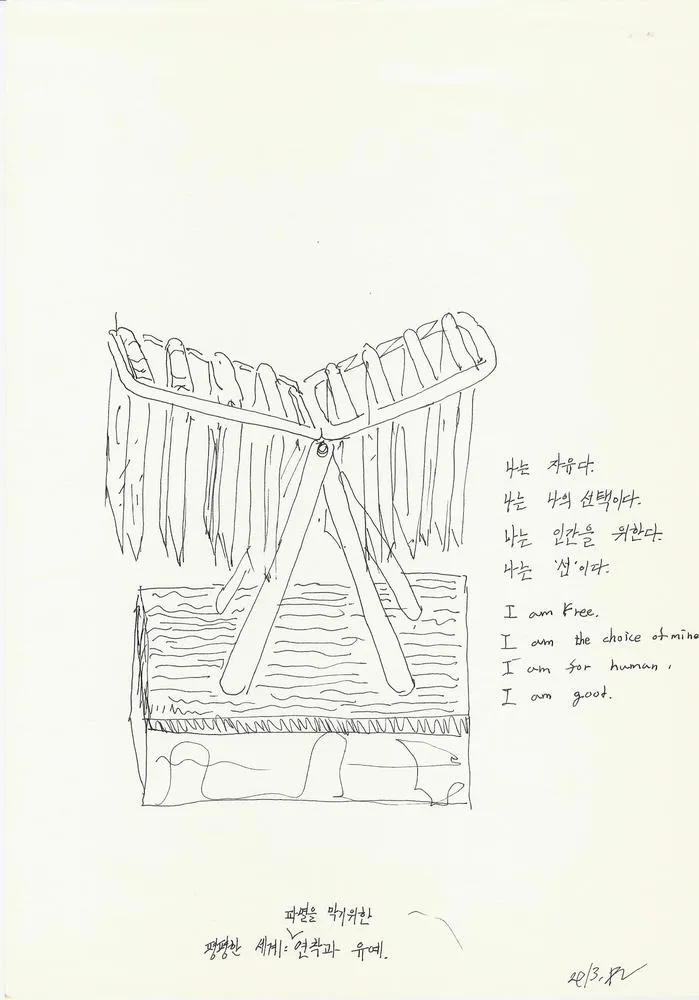 나는 자유다.
나는 나의 선택이다.
나는 인간을 위한다.
나는 '선'이다.
I am Free.
I am the choice of mine
I am for human,
I am good.
파열을 막기위한
평평한 세계: 연착과 유예.
2013.